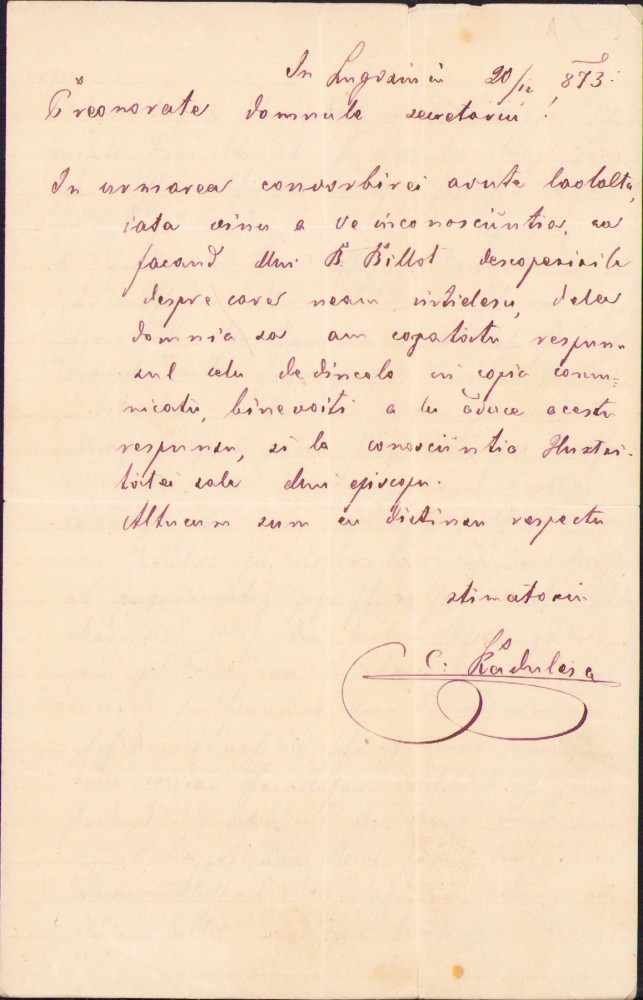 In Lugosiuiu 20/12 873.
Preonorate domnule secretariu!
In urmarea convorbirei avute laolalta,
iata vinu a ve inconosciintia, ca
facand dlui B. Billot descoperirile
despre care neam intielesu, dela
domnia sa am capatatu respun-
sul celu de dincolo in copia comu-
nicatu, binevoiti a lu aduce acestu
respunsu, si la conosciintia Ilustri-
tatei sale dlui episcopu.
Altucum sum cu distinsu respectu
stimatoriu
C. Radulesa